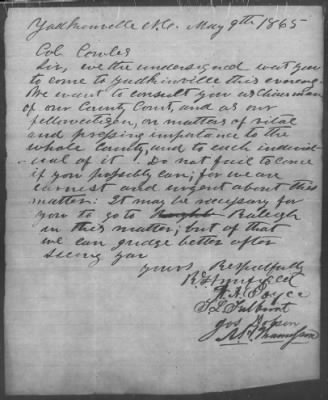 Yadkinville N.C. May 9th 1865
Col Cowles
Sir, we the undersigned want you
to come to Yadkinville this evening.
We want to consult you as Chairman
of our County Court, and as our
fellow citizen, on matters of vital
and pressing importance to the
whole County, and to each individ-
ual of it. Do not fail to come
if you possibly can; for we are
earnest and urgent about this
matter: It may be necessary for
you to go to Raleigh
in this matter; but of that
we can judge better after
seeing you
Yours Respectfully
R. F. Armfield
Jos Dobson